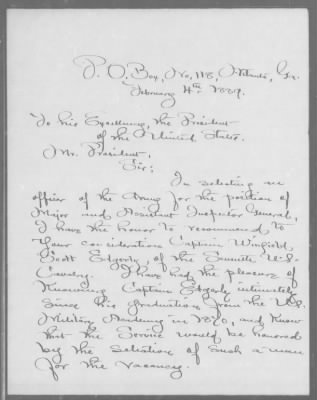 P. O. Box, No. 118, Atlanta, Ga.
February 4th 1889.
To his Excellency, the President
of the United States.
Mr. President,
Sir:
In selecting an
officer of the Army for the position of
Major and Assistant Inspector General,
I have the honor to recommend to
your consideration Captain Winfield
Scott Edgerly, of the Seventh U.S.
Cavalry. I have had the pleasure of
knowing Captain Edgerly intimately
since his graduation from the U.S.
Military Academy in 1870, and know
that the Service would be honored
by the selection of such a man
for the vacancy.